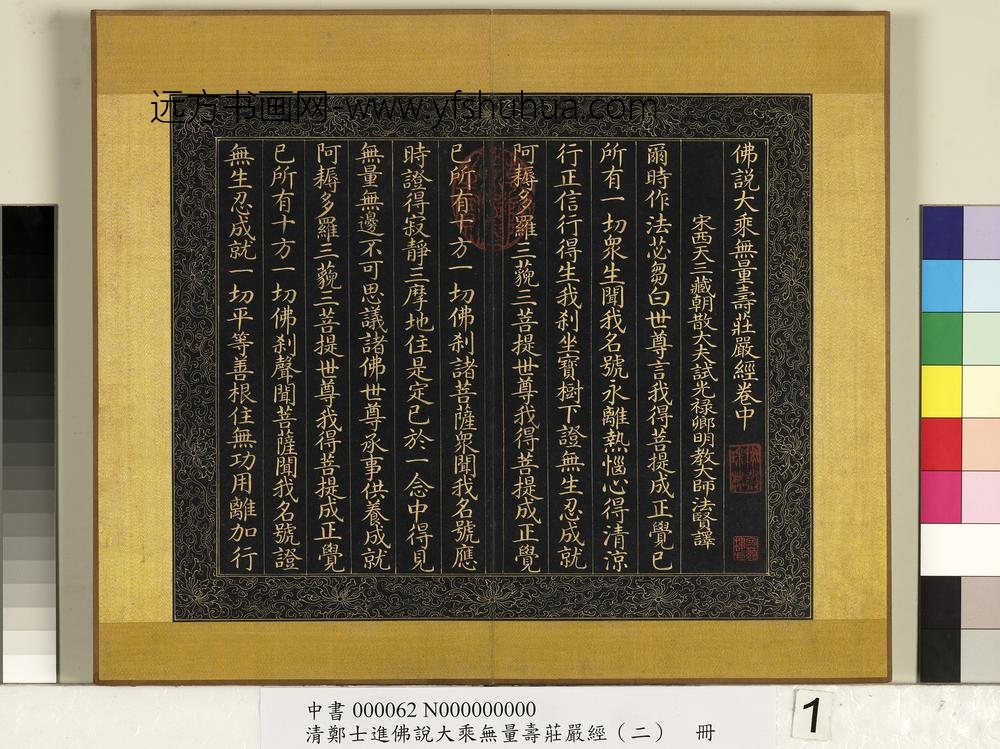 远方书画网-www.yfshuhua.com
佛說大乘無量壽莊嚴經卷中
宋西天三藏朝散大夫試光祿卿明教大師法賢譯
爾時作法苾芻白世尊言我得菩提成正覺已
所有一切衆生聞我名號永離熱惱心得清涼
行正信行得生我刹坐寶樹下證無生忍成就
阿耨多羅三藐三菩提世尊我得菩提成正覺
已所有十方一切佛刹諸菩薩衆聞我名號應
時證得寂靜三摩地住是定已於一念中得見
無量無邊不可思議諸佛世尊承事供養成就
阿耨多羅三藐三菩提世尊我得菩提成正覺
已所有十方一切佛刹聲聞菩薩聞我名號證
無生忍成就一切平等善根住無功用離加行
中書 000062 N000000000
清鄭士進佛說大乘無量壽莊嚴經（二） 冊
1